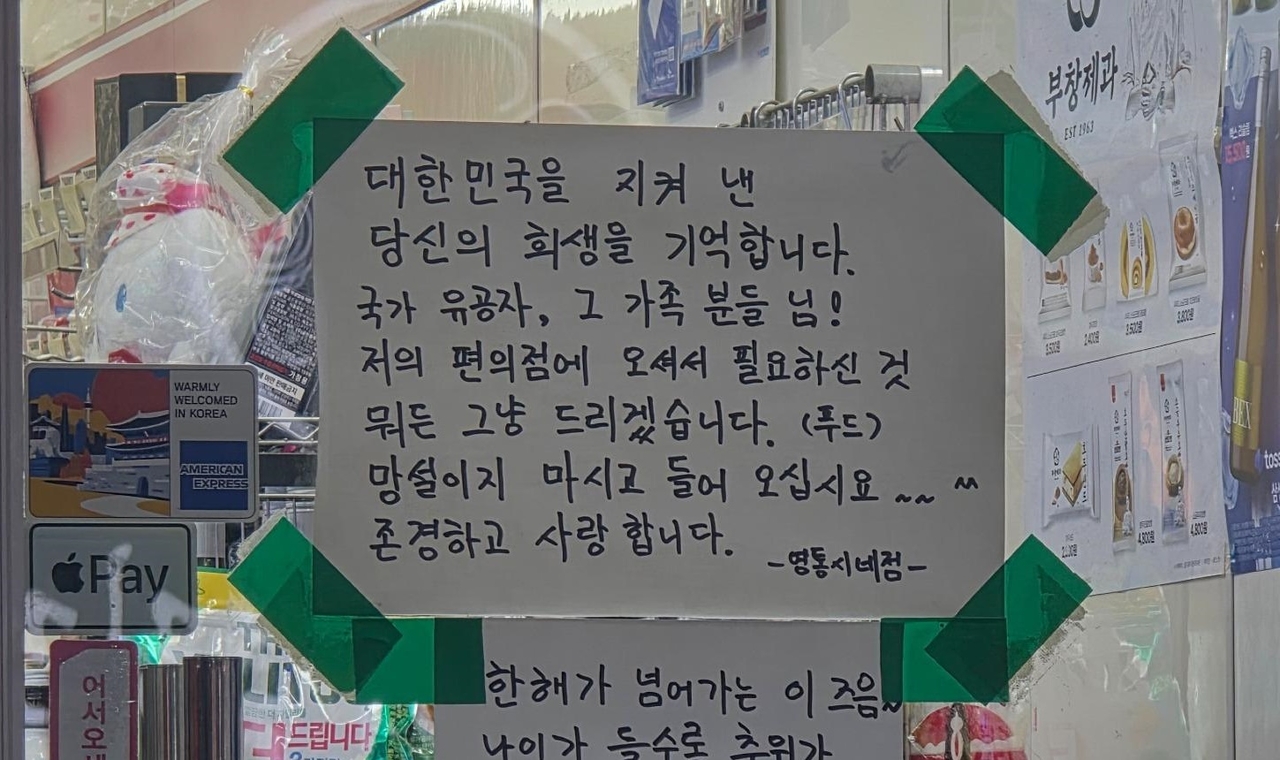 대한민국을 지켜 낸
당신의 희생을 기억합니다.
국가 유공자, 그 가족 분들 님!
저의 편의점에 오셔서 필요하신 것
뭐든 그냥 드리겠습니다. (푸드)
망설이지 마시고 들어 오십시요 ~~ ^^
존경하고 사랑합니다.
-영통시네점-
한해가 넘어가는 이 즈음~
나이가 들수로 추위가
WARMLY
WELCOMED
IN KOREA
AMERICAN
EXPRESS
Pay
어서오세
드립니다
부창제과
EST 1963
3,500원
2,400원
3,500원
3,800원
4,800원
4,800원
toss